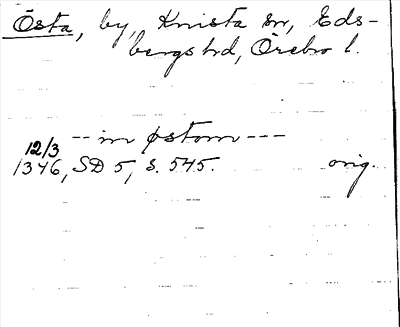 Östa, by, Knista sn, Eds-
bergs hd, Örebro l.
-- in østom ---
12/3
1346, SD 5, s. 545. orig.